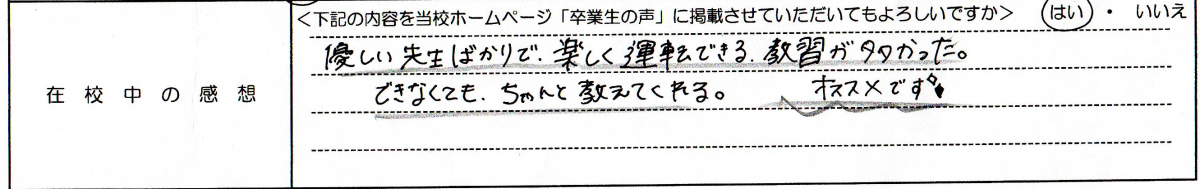 <下記の内容を当校ホームページ「卒業生の声」に掲載させていただいてもよろしいですか> はい ・ いいえ
在校中の感想
優しい先生ばかりで、楽しく運転できる、教習が多かった。
できなくても、ちゃんと教えてくれる。 オススメです